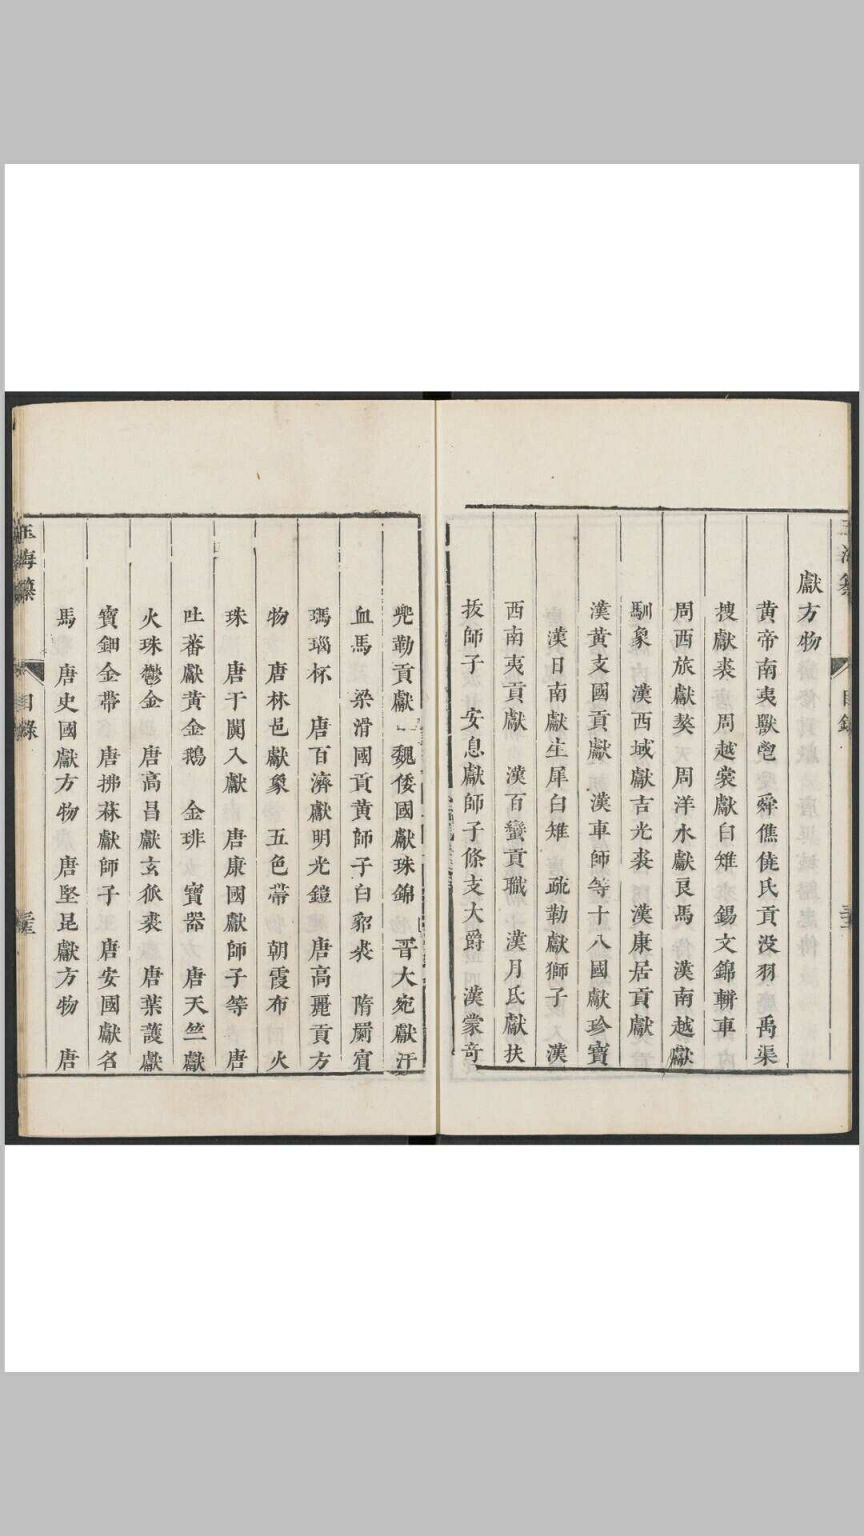 獻方物
黃帝南夷獸鬯　舜僬僥氏貢没羽　禹渠
搜獻裘　周越裳獻白雉　錫文錦輧車
周西旅獻獒　周洋水獻良馬　漢南越獻
馴象　漢西域獻吉光裘　漢康居貢獻
漢黃支國貢獻　漢車師等十八國獻珍寶
漢日南獻生犀白雉　疏勒獻獅子　漢
西南夷貢獻　漢百蠻貢職　漢月氏獻扶
拔師子　安息獻師子條支大爵　漢蒙奇
兠勒貢獻　魏倭國獻珠錦　晋大宛獻汗
血馬　梁滑國貢黃師子白貂裘　隋罽賓
瑪瑙杯　唐百濟獻明光鎧　唐高麗貢方
物　唐林邑獻象　五色帶　朝霞布　火
珠　唐于闐入獻　唐康國獻師子等　唐
吐蕃獻黃金鵝　金琲　寶器　唐天竺獻
火珠鬱金　唐高昌獻玄狐裘　唐葉護獻
寶鈿金帶　唐拂菻獻師子　唐安國獻名
馬　唐史國獻方物　唐堅昆獻方物　唐
玉海纂
目錄